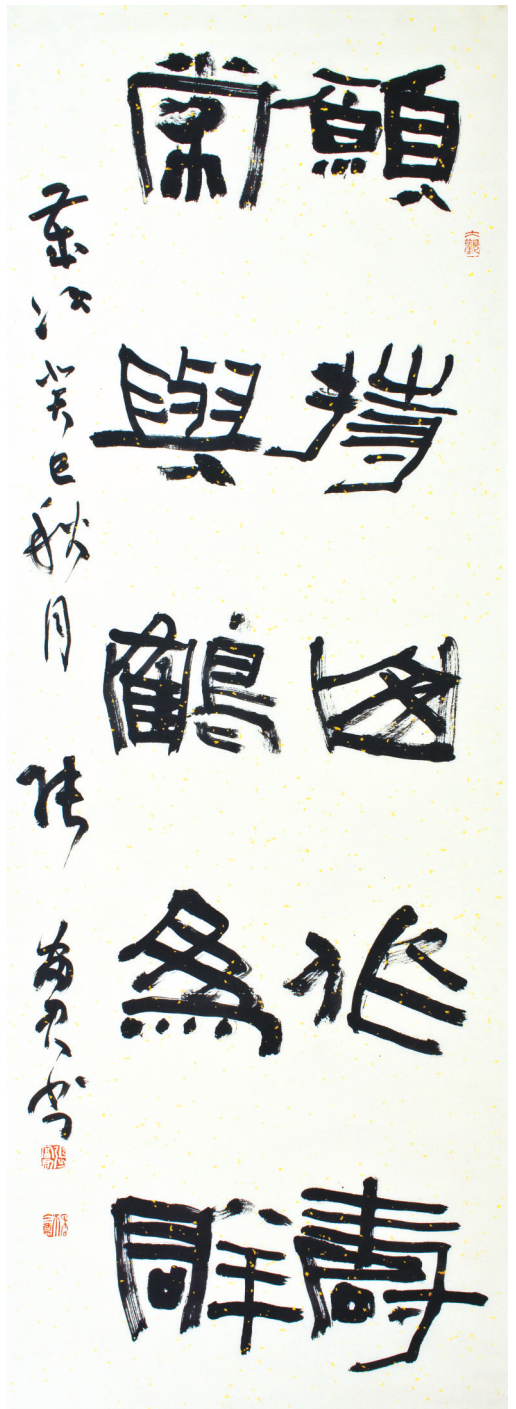 願持山作壽
常與鶴為群
歲次癸巳秋月 張 書